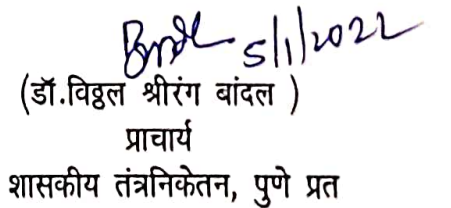 5/1/2022
(डॉ.विठ्ठल श्रीरंग बांदल )
प्राचार्य
शासकीय तंत्रनिकेतन, पुणे प्रत